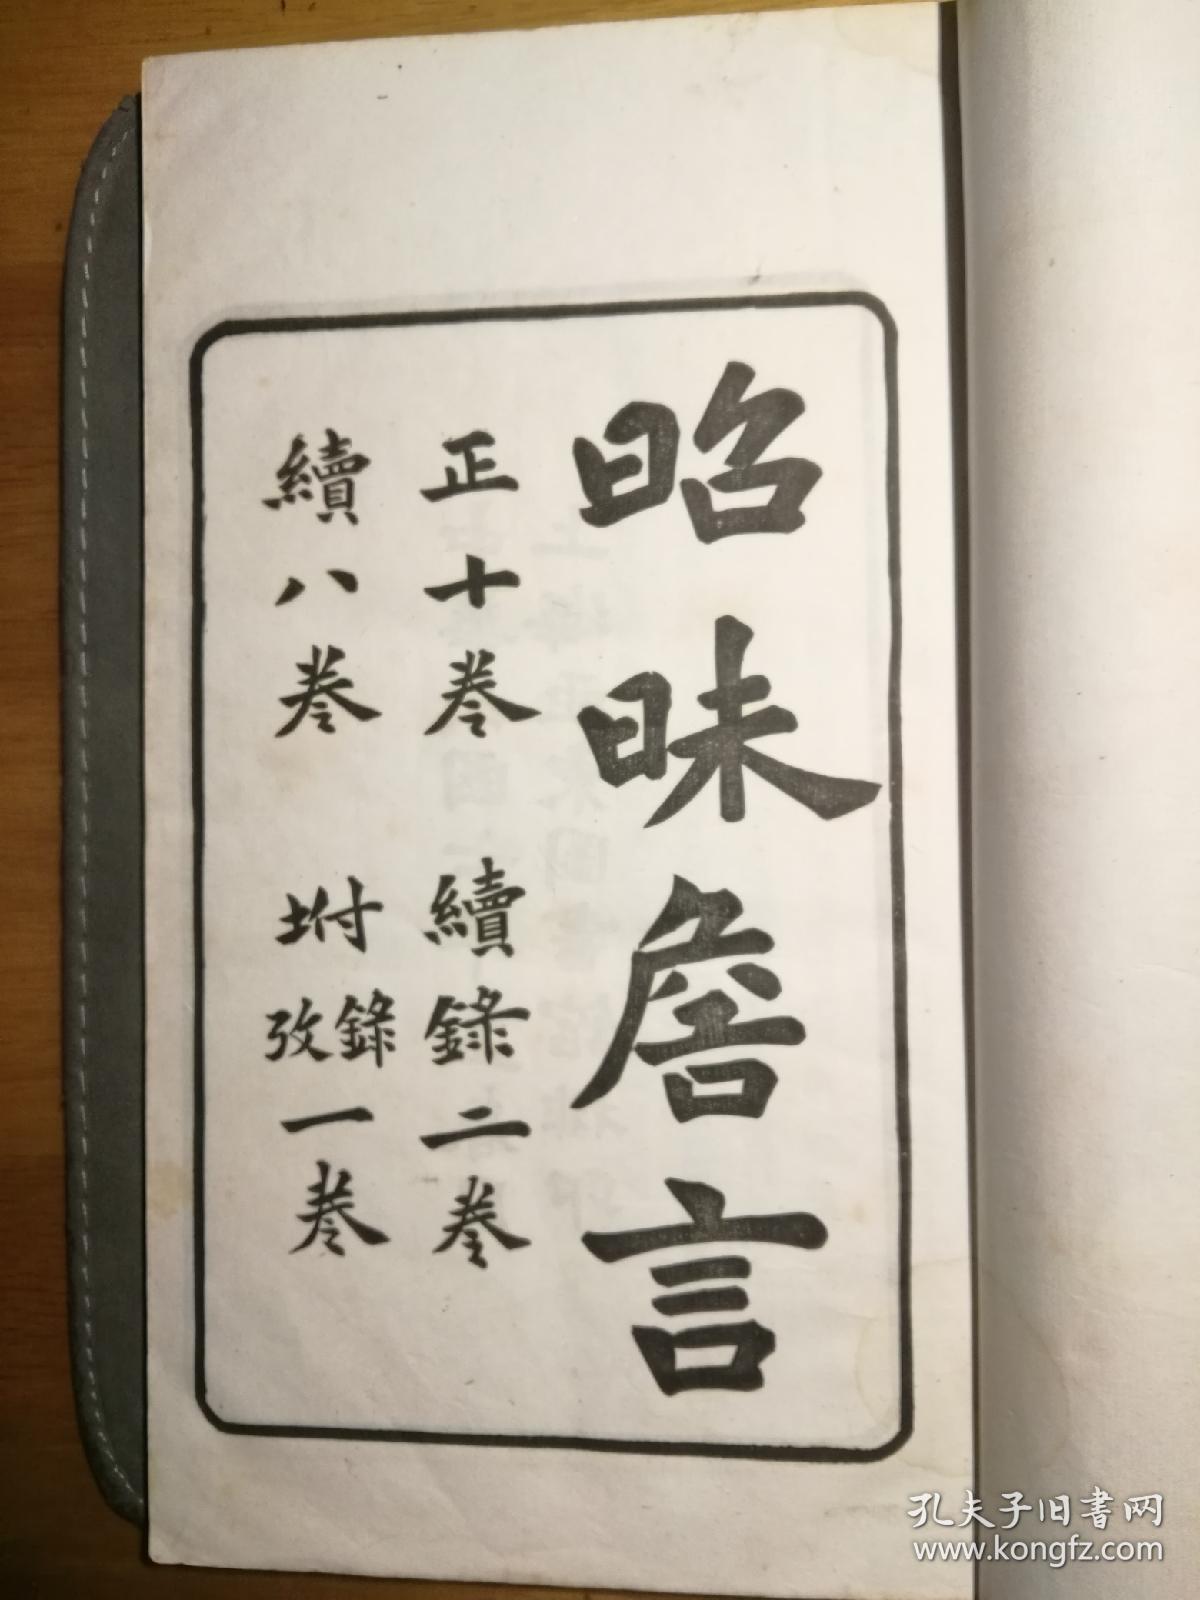 昭昧詹言
正十卷 續錄二卷
續八卷 坿錄攷一卷
孔夫子旧书网
www.kongfz.com